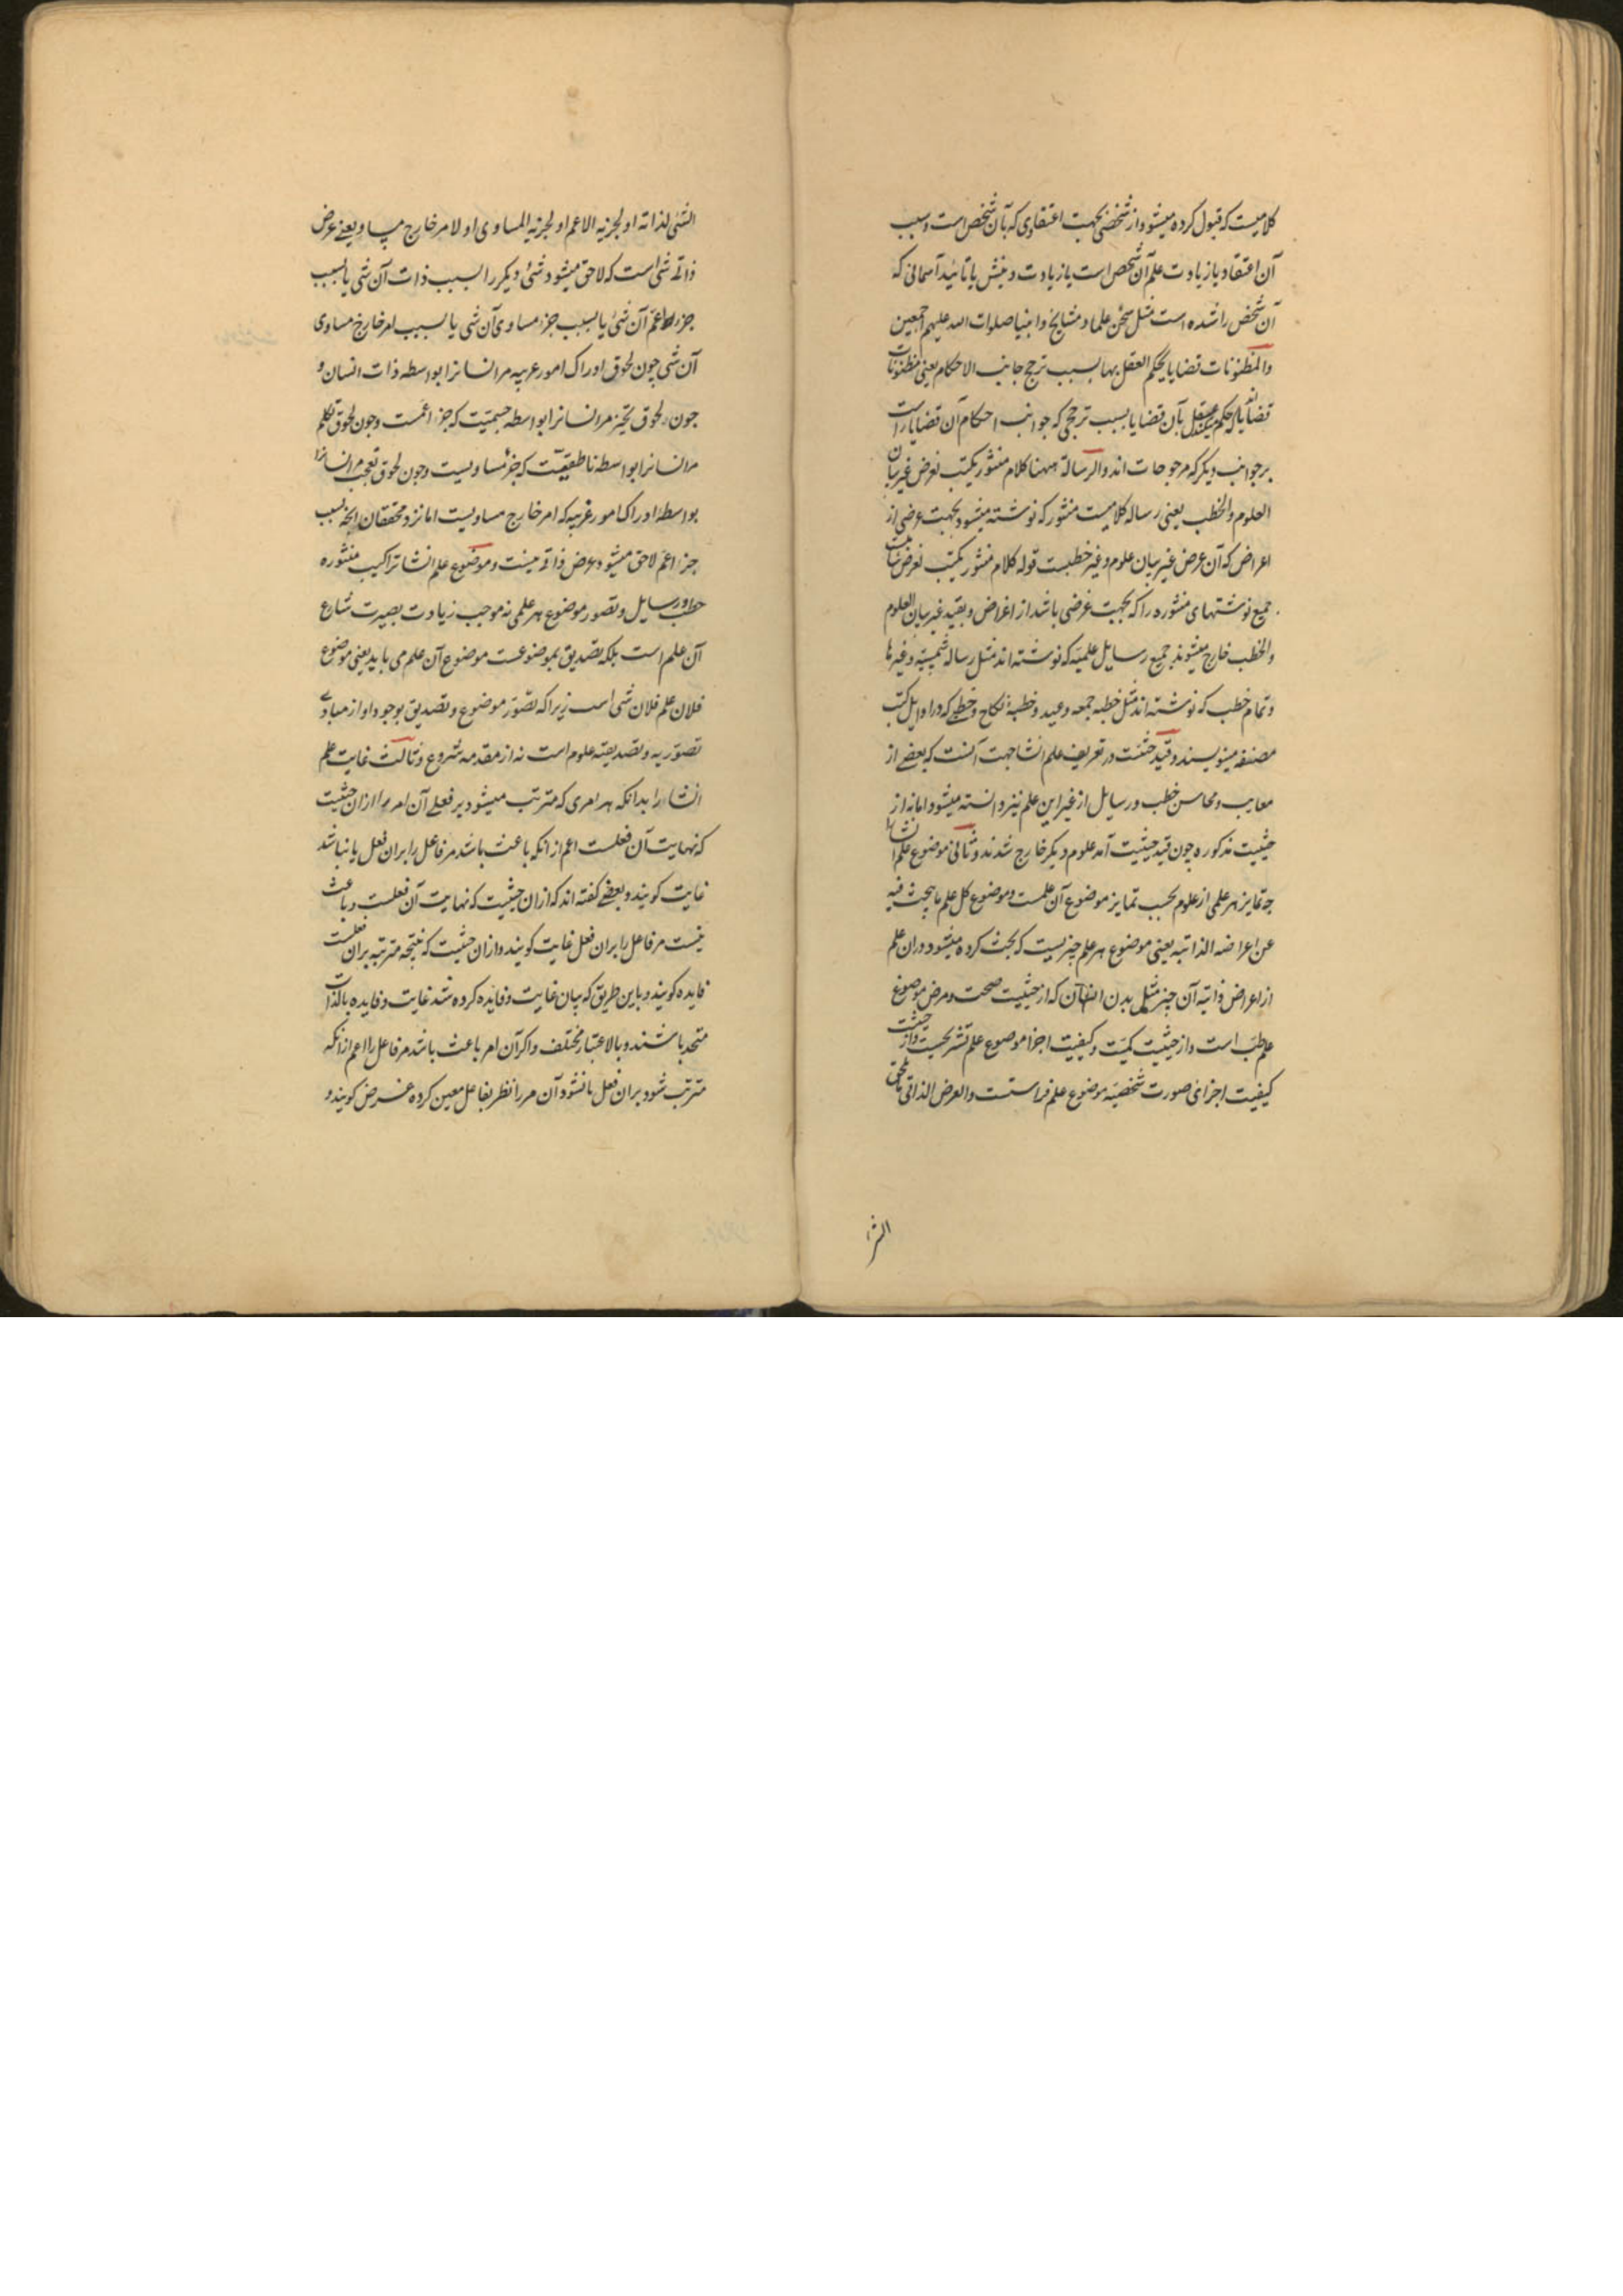 کلامیست که قبول کرده میشود از شخصی بجهت اعتقادی که بآن شخص است و سبب
آن اعتقاد یا زیادت علم آن شخص است یا زیادت دینش یا تائید آسمانی که
آن شخص را شده است مثل سخن علما و مشایخ و انبیا صلوات الله علیهم اجمعین
والمظنونات قضایا یحکم العقل بها بسبب ترجح جانب الاحکام یعنی مظنونات
قضایااند که حکم میکند عقل بآن قضایا بسبب ترجحی که جوانب احکام آن قضایا راست
بر جوانب دیگر که مرجوحات اند والرسالة ههنا کلام منثور یکتب لغرض غیر بیان
العلوم والخطب یعنی رساله کلامیست منثور که نوشته میشود بجهت عرضی از
اعراض که آن عرض غیر بیان علوم و غیر خطبست قوله کلام منثور یکتب لغرض شاملست
جمیع نوشتهای منثوره را که بجهت غرضی باشد از اغراض و بقید غیر بیان العلوم
والخطب خارج میشوند جمیع رسایل علمیه که نوشته اند مثل رساله شمسیة و غیرها
و تمام خطب که نوشته اند مثل خطبه جمعه و عید و خطبهٔ نکاح و خطبی که در اوایل کتب
مصنفه مینویسند و قید حیثیت در تعریف علم انشا جهت آنست که بعضی از
معایب و محاسن خطب و رسایل از غیر این علم نیز دانسته میشود اما نه از
حیثیت مذکوره چون قید حیثیت آمد علوم دیکر خارج شدند و ثانی موضوع علم انشا
چه تمایز هر علمی از علوم بحسب تمایز موضوع آن علمست و موضوع کل علم ما یبحث فیه
عن اعراضه الذاتیه یعنی موضوع هر علم چیزیست که بحث کرده میشود در آن علم
از اعراض ذاتیه آن چیز مثل بدن انسان که از حیثیت صحت و مرض موضوع
علم طب است و از حیثیت کمیت و کیفیت اجزا موضوع علم تشریحست و از حیثیت
کیفیت اجزای صورت شخصیه موضوع علم فراستست والعرض الذاتی ما یلحق
الشی
الشئ لذاته او لجزئه الاعم او لجزئه المساوی او لامر خارج مساو یعنی عرض
ذاتی شی است که لاحق میشود شئ دیکر را بسبب ذات آن شی یا بسبب
جزء اعم آن شئ یا بسبب جزء مساوی آن شی یا بسبب امر خارج مساوی
آن شی چون لحوق ادراک امور غریبه مر انسانرا بواسطه ذات انسان و
چون لحوق تحیز مر انسانرا بواسطه جسمیت که جزء اعمست و چون لحوق تکلم
مر انسانرا بواسطه ناطقیت که جزء مساویست و چون لحوق تعجب مر انسانرا
بواسطه ادراک امور غریبه که امر خارج مساویست اما نزد محققان آنچه بسبب
جزء اعم لاحق میشود عرض ذاتی نیست و موضوع علم انشا تراکیب منثوره
خطب و رسایل و تصور موضوع هر علمی نه موجب زیادت بصیرت شارع
آن علم است بلکه تصدیق بموضوعیت موضوع آن علم می باید یعنی موضوع
فلان علم فلان شی است زیرا که تصور موضوع و تصدیق بوجود او از مبادی
تصوریه و تصدیقیه علوم است نه از مقدمه شروع و ثالث غایت علم
انشا را بدانکه هر امری که مترتب میشود بر فعلی آن امر را از ان حیثیت
که نهایت آن فعلست اعم از انکه باعث باشد مر فاعل را بران فعل یا نباشد
غایت کویند و بعضی کفته اند که از ان حیثیت که نهایت آن فعلست و باعث
نیست مر فاعل را بران فعل غایت کویند و از ان حیثیت که نتیجه مترتبه بران فعلست
فایده کویند و باین طریق که بیان غایت و فایده کرده شد غایت و فایده بالذات
متحد باشند و بالاعتبار مختلف و اکر آن امر باعث باشد مر فاعل را اعم از انکه
مترتب شود بران فعل یا نشود آن مر را نظر بفاعل معین کرده غرض کویند و